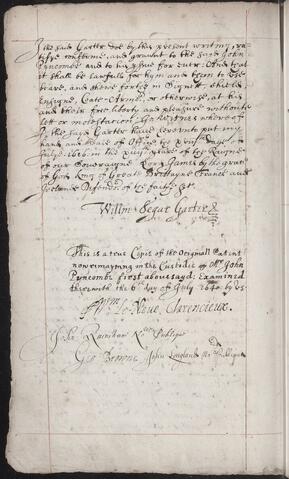 the said Garter doe by this present writing ra-
tifye confirme, and graunt to the said John
Pyncombe and to his yssue for ever: And that
it shall be lawfull for hym and them to use
beare, and shewe forth in Signett Shield
Ensigne, Cote-Armor, or otherwise, at his
and their free liberty and pleasure without
lett or molestacion: In Wytnes whereof
I the said Garter have hereunto put my
hand and Seale of Office the day
July. 1616. in the yeare of the Raigne
of our Soveraigne Lord James by the grace
of God King of Greate Brittayne France and
Ireland Defendor of the faithe &c.
Willm Segar Garter
This is a true Copie of the Originall Patent
nowe remayning in the Custodie of Mr John
Pyncombe first abovesayd: Examined
therewith the 6th day of July 1640 by us.
Wm Le Neve Clarenceux.
John
Geo Browne John England